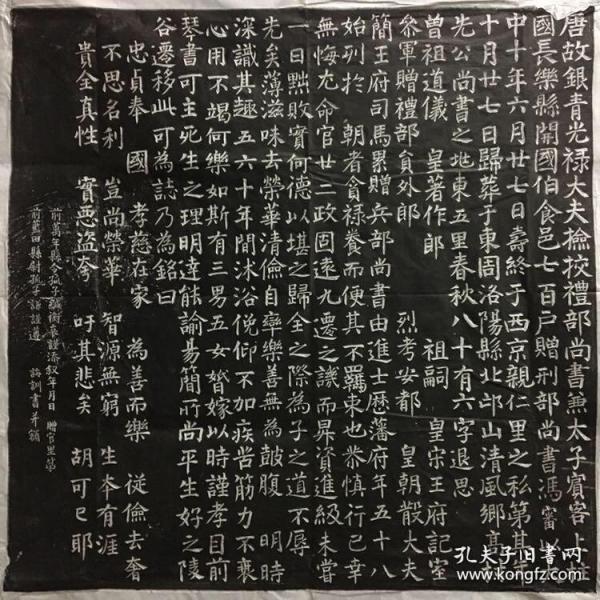 唐故銀青光祿大夫撿挍禮部尚書兼太子賓客上柱
國長樂縣開國伯食邑七百戶贈刑部尚書馮審以
中十年六月廿七日壽終于西京親仁里之私第其年
十月廿七日歸葬于東周洛陽縣北邙山清風鄉
先公尚書之地東五里春秋八十有六字退思
曾祖道儀 皇著作郎 祖嗣 皇宗王府記室
叅軍贈禮部貟外郎 烈考安都 皇朝散大夫
簡王府司馬累贈兵部尚書由進士歷藩府年五十八
始列於 朝者貪禄養而便其不羈束也恭慎行己幸
無悔尤命官廿二政固遠九遷之譏而昇資進級未嘗
一日黜敗實何德以堪之歸全之際為子之道不辱
先矣薄滋味去榮華清儉自樂善無為鼓腹 明時
深識其趣五六十年間沐浴俛仰不加疾苦筋力不衰
心用不竭何樂如斯有三男五女婚嫁以時謹孝目前
琴書可主死生之理明達能諭易簡所尚平生好之陵
谷遷移此可為誌乃為銘曰
忠貞奉 國 孝慈在家 為善而樂 従儉去奢
不思名利 豈尚榮華 智源無窮 生夲有涯
貴全真性 實惡盜夸 吁其悲矣 胡可已耶
前萬年縣令孤子緘銜哀謹添叙年月日 贈官里第
前藍田縣尉孤子謙謹遵 誨訓書并篆
孔夫子旧书网
www.kongfz.com